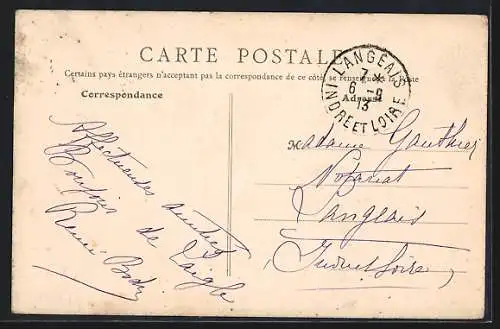 CARTE POSTALE
Certains pays étrangers n'acceptant pas la correspondance de ce côté se renseigner à la Poste
Correspondance
Adresse
LANGEAIS
7
6 - 9
13
INDRE ET LOIRE
Madame Gauthier
Notariat
Langeais
Indre et Loire
Affectueuses amitiés
Bonjour de Laigle